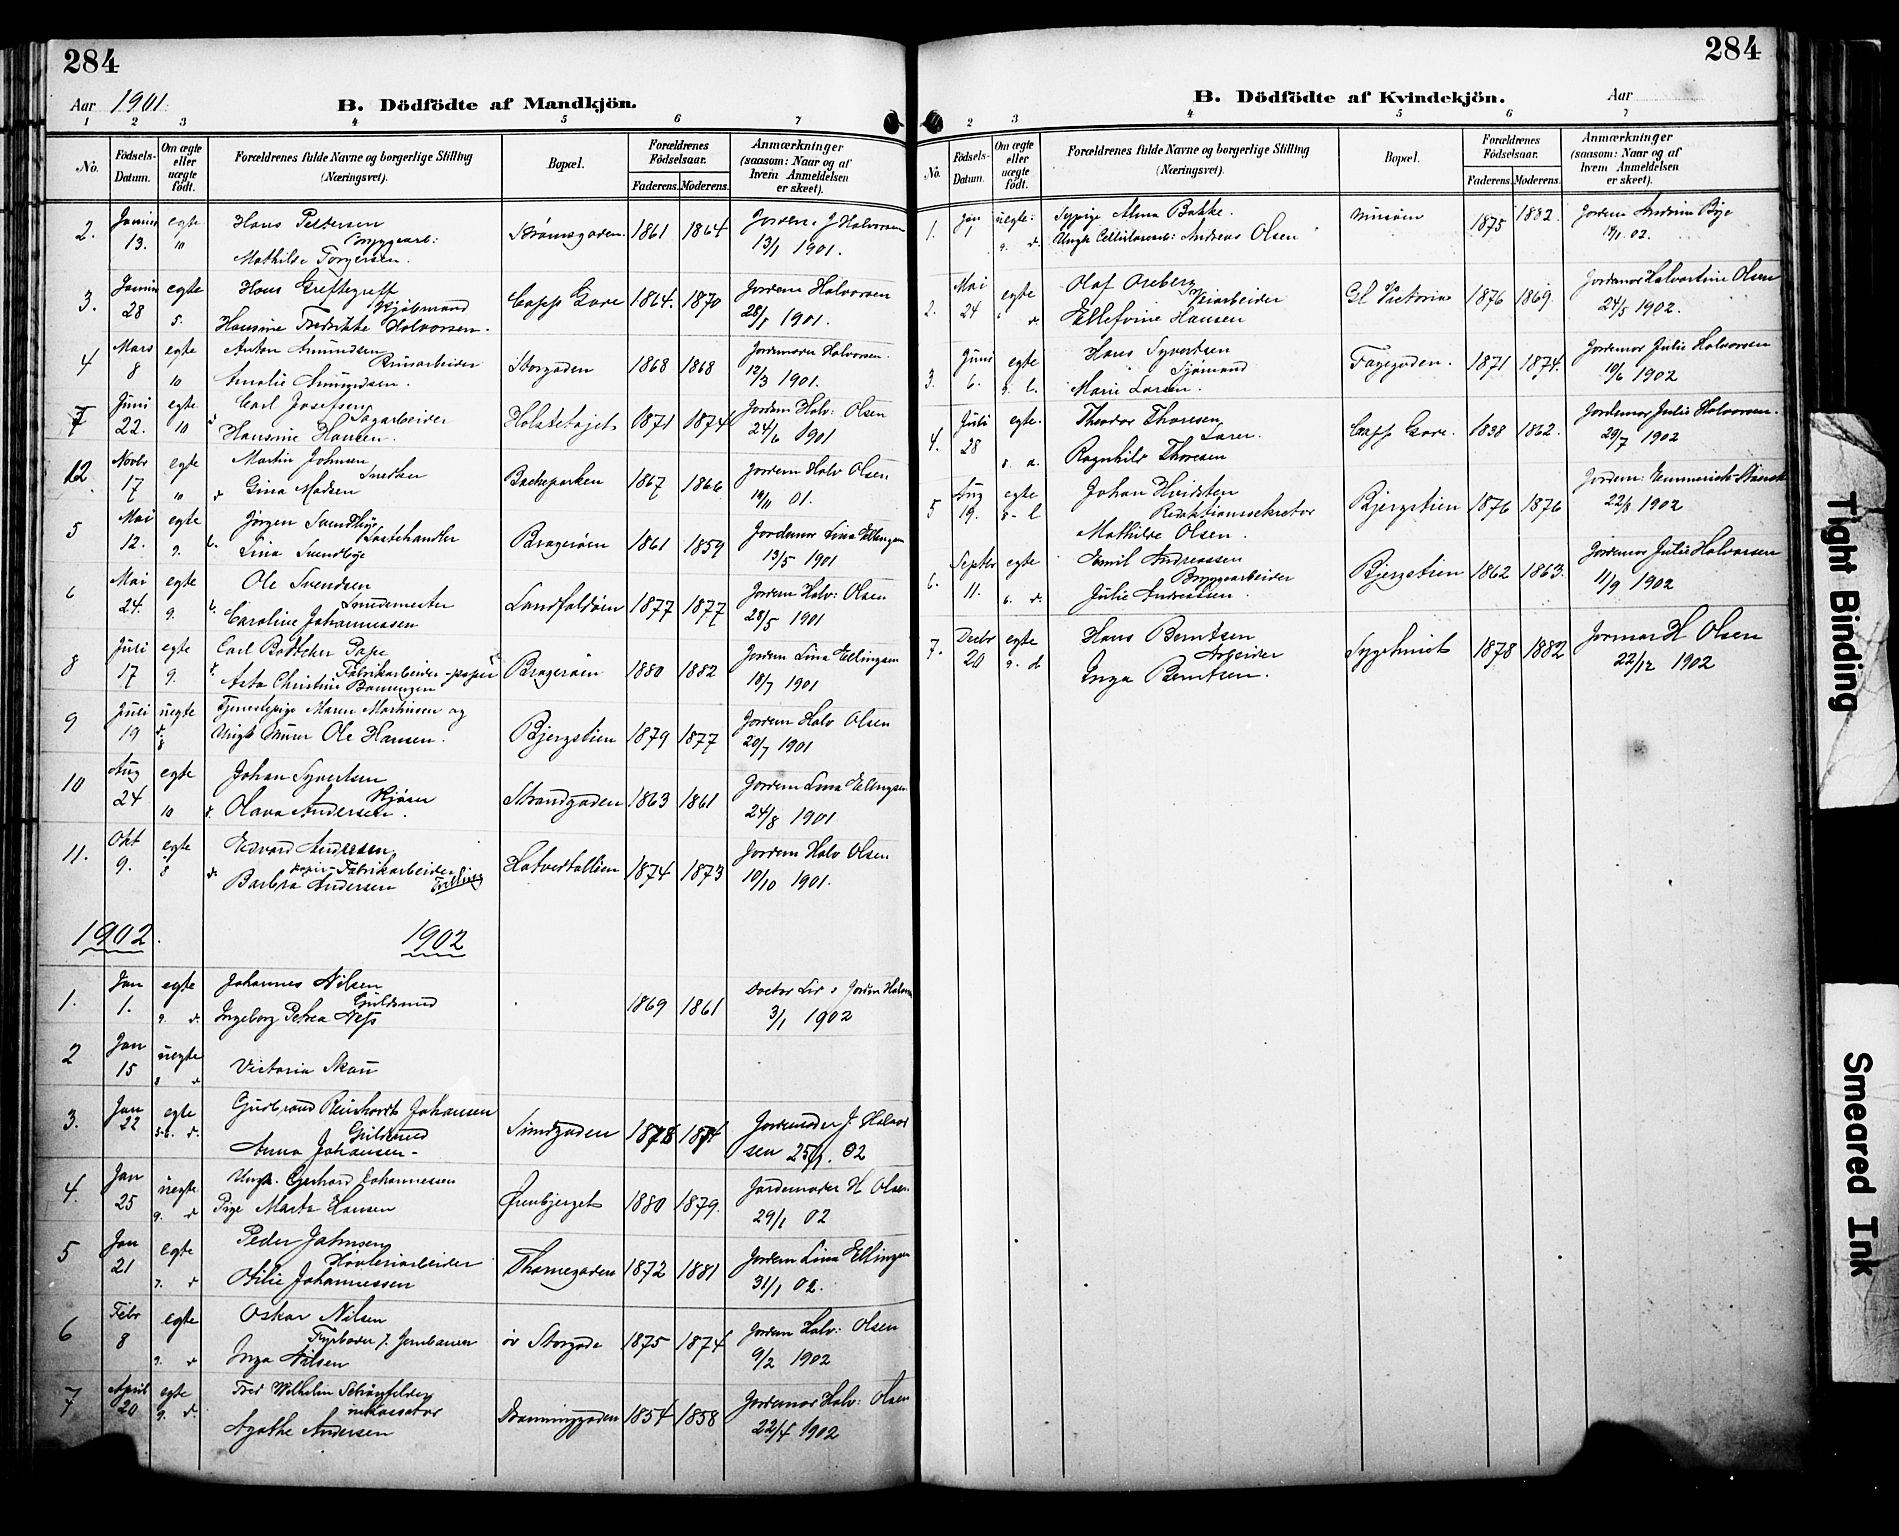 284
Aar 1901.
B. Dödfödte af Mandkjön.
1 2 3 4 5 6 7
No. Födsels-Datum. Om ægte eller uægte født. Forældrenes fulde Navne og borgerlige Stilling (Næringsvei). Bopæl. Forældrenes Födselsaar. Faderens. Moderens. Anmærkninger (saasom: Naar og af hvem Anmeldelsen er skeet).
2. 13. egte 10 Hans Pettersen
Bryggearb:
Mathilde Torgersen. 1861 1864 Jordem. J. Halvorsen
13/1 1901.
3. 28 egte 5. Hans
Kjøbmand
Hansine Fredrikke Halvorsen. Capp Gare 1864. 1870 Jordem Halvorsen
28/1 1901.
4 Mars 8 egte 10 Anton Amundsen
Amalie Amundsen. Storgaden 1868 1868 Jordemoder Halvorsen.
12/3 1901.
7 Juni 22. egte 10 Carl Josefsen
Sagarbeider
Hansine Hansen. 1871 1874 Jordem Halv: Olsen
24/6 1901
12. Novbr 17 egte 10 Martin Johnsen
Snedker
Gina Madsen Bacheparken 1867 1866 Jordem Halv Olsen
19/11 01.
5 Mai 12. egte 9. Jørgen Sundbye
Lina Sundbye Bragerøen 1861 1859 Jordemor Lina Ellingsen
13/5 1901
6 Mai 24. egte 9. Ole Svendsen
Smedemester
Caroline Johannessen Landfaldøen 1877 1877 Jordem Halv: Olsen
28/5 1901
8 Juli 17 egte 9. Carl Böttcher Pape
Fabrikarbeider - papir
Asta Christine Bragerøen 1880 1882 Jordem Lina Ellingsen
18/7 1901
9 Juli 19 uegte 8 Tjenestepige Maren Martinsen og
Ungk Murer Ole Hansen. Bjergstien 1879 1877 Jordem Halv Olsen
20/7 1901
10 Aug 24 egte 10 Johan Syvertsen
Olava Andersen. Strandgaden 1863 1861 Jordem Lina Ellingsen
24/8 1901
11. Okt 9. egte 8 Edvard Andersen
papir-Fabrikarbeider
Barbra Andersen Tvilling 1874 1873 Jordem Halv Olsen
10/10 1901.
1902. 1902
1. Jan 1. egte 9. d. Johannes Nilsen
Guldsmed
Ingeborg Petrea 1869 1861 Doctor
3/1 1902
2 Jan 15 uegte 8 d Victoria Skau
3. Jan 22 egte 5-6. d. Gudbrand Reinhardt Johansen
Guldsmed
Anna Johansen - Sundgaden Jordemoder J. Halvor
sen 25/1 02
4. Jan 25 uegte 9. d Ungk. Gerhard Johannessen
Pige Marta Hansen Ørenbjerget 1880 1879. Jordemoder H Olsen.
29/1 02
5 Jan 21 egte 7. d Peder Johnsen
Høvleriarbeider
Otilie Johannessen Thornegaden 1872 1881 Jordem Lina Ellingsen
31/1 02.
6 Febr 8 egte 9. d Oskar Nilsen
Fyrbøder v. Jernbanen
Inga Nilsen øv Storgade 1875 1874 Jordem Halv: Olsen
9/2 1902
7 April 20 egte 9. d. Fred Wilhelm Schönfelder
inkassator
Agathe Andersen 1854 1858 Jordemor Halv: Olsen
22/4 1902
284
B. Dödfödte af Kvindekjön.
Aar
2 3 4 5 6 7
No. Födsels-Datum. Om ægte eller uægte födt. Forældrenes fulde Navne og borgerlige Stilling (Næringsvei). Bopæl. Forældrenes Födselsaar. Faderens. Moderens. Anmærkninger (saasom: Naar og af hvem Anmeldelsen er skeet).
1. Jan 1 uegte: 9. d. Sypige Alma Bakke.
Ungk Cellulosearb: Andreas Olsen 1875 1882. Jordem Andrine Bye
02.
2. Mai 24 egte Olaf Aseberg
Ellefine Hansen Gl Victoria 1876 1869. Jordemor Halvordine Olsen
24/5 1902.
3. Juni 6. egte 9. l. Hans Syvertsen
Sjømand
Marie Larsen. 1871 1874. Jordemor Julie Halvorsen
10/6 1902
4. Juli 28 egte. Theodor Thorsen
Ragnhild Thoresen Capp Gare. 1838 1862. Jordemor Julie Halvorsen.
29/7 1902
5 Aug 19. egte 8 - l Johan Hvidsten
Redaktionssekretær
Mathilde Olsen. Bjergstien 1876 1876 Jordem:
22/8 1902
6. Septbr 11. egte 6. d. Emil Andreassen
Bryggearbeider
Julie Andreassen. Bjergstien 1862 1863. Jordemor Julie Halvorsen
11/9 1902
7. Decbr 20 egte 9. d Hans Berntsen
Arbeider
Inga Berntsen. Sygehuset 1878 1882 Jormor H Olsen
22/12 1902
Tight Binding
Smeared Ink